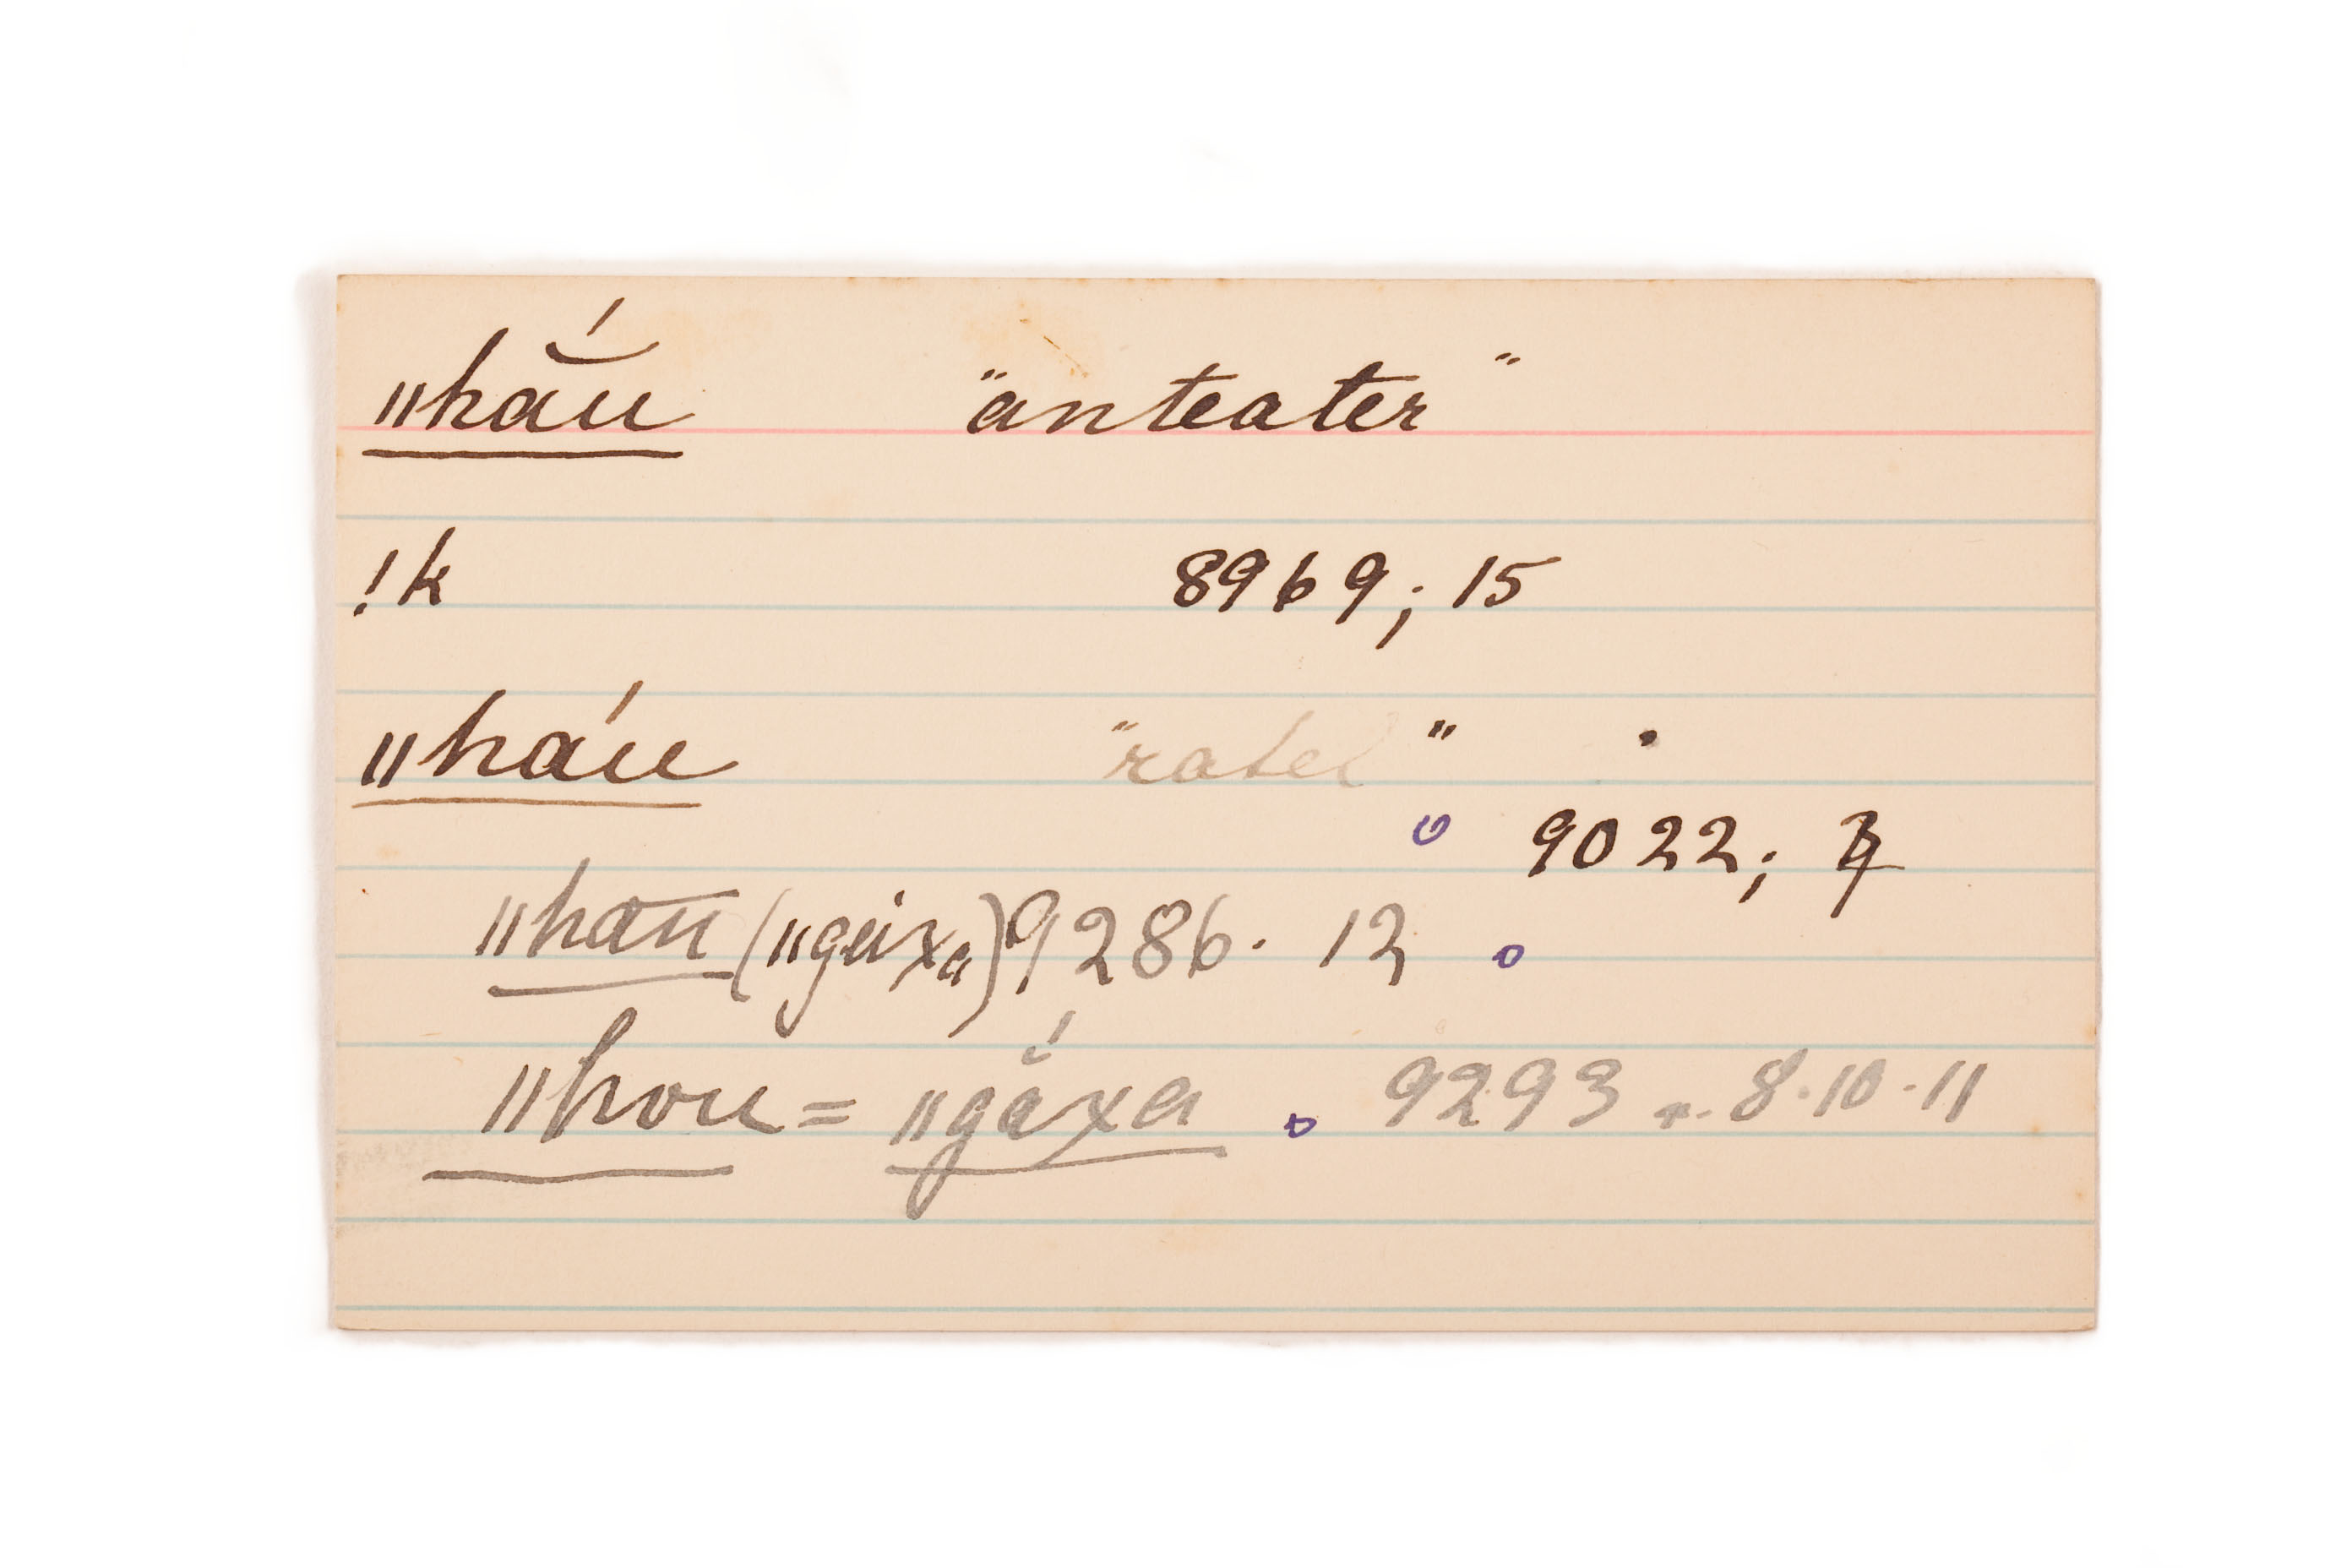 ǁhắu "anteater"
!k 8969; 15
ǁháu "ratel"
9022;
ǁhau (ǁgeixa) 9286. 12
ǁhou = ǁgắxa 9293 r. 8.10.11